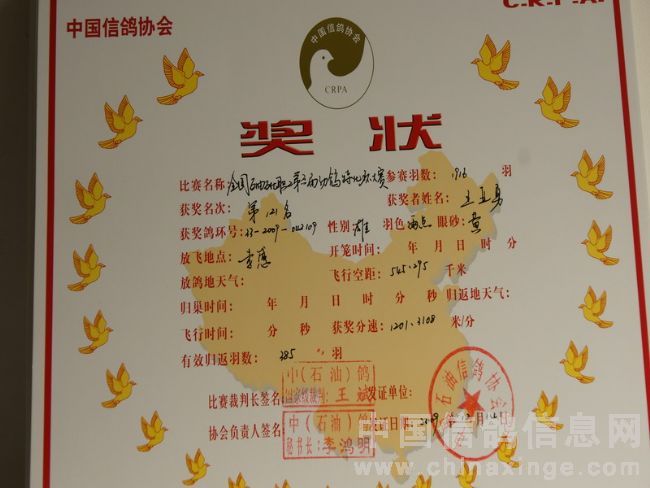 中国信鸽协会
C.R.P.A.
中国信鸽协会
CRPA
奖 状
比赛名称 全国 参赛羽数: 1916 羽
获奖名次: 第121名 获奖者姓名: 王亚勇
获奖鸽环号: 33-2009-042109 性别 雄 羽色 雨点 眼砂: 黄
放飞地点: 孝感 开笼时间: 年 月 日 时 分
放鸽地天气: 飞行空距: 545.295 千米
归巢时间: 年 月 日 时 分 秒 归返地天气:
飞行时间: 分 秒 获奖分速: 1201.3108 米/分
有效归返羽数: 285 羽
比赛裁判长签名: 发证单位:
中(石油)鸽
国家级裁判: 王斌
协会负责人签名: 发证日期: 2009年12月 日
中(石油)鸽
秘书长: 李鸿明
石油信鸽协会
中国信鸽信息网
www.chinaxinge.com